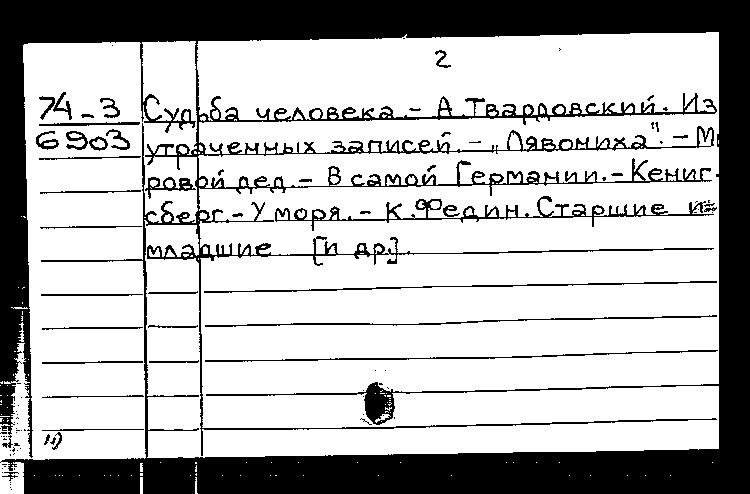 2
74-3 Судьба человека.- А.Твардовский. Из
6903 утраченных записей.- „Лявониха".-
ровой дед.- В самой Германии.- Кениг-
сберг.- У моря.- К.Федин. Старшие и
младшие [и др.].